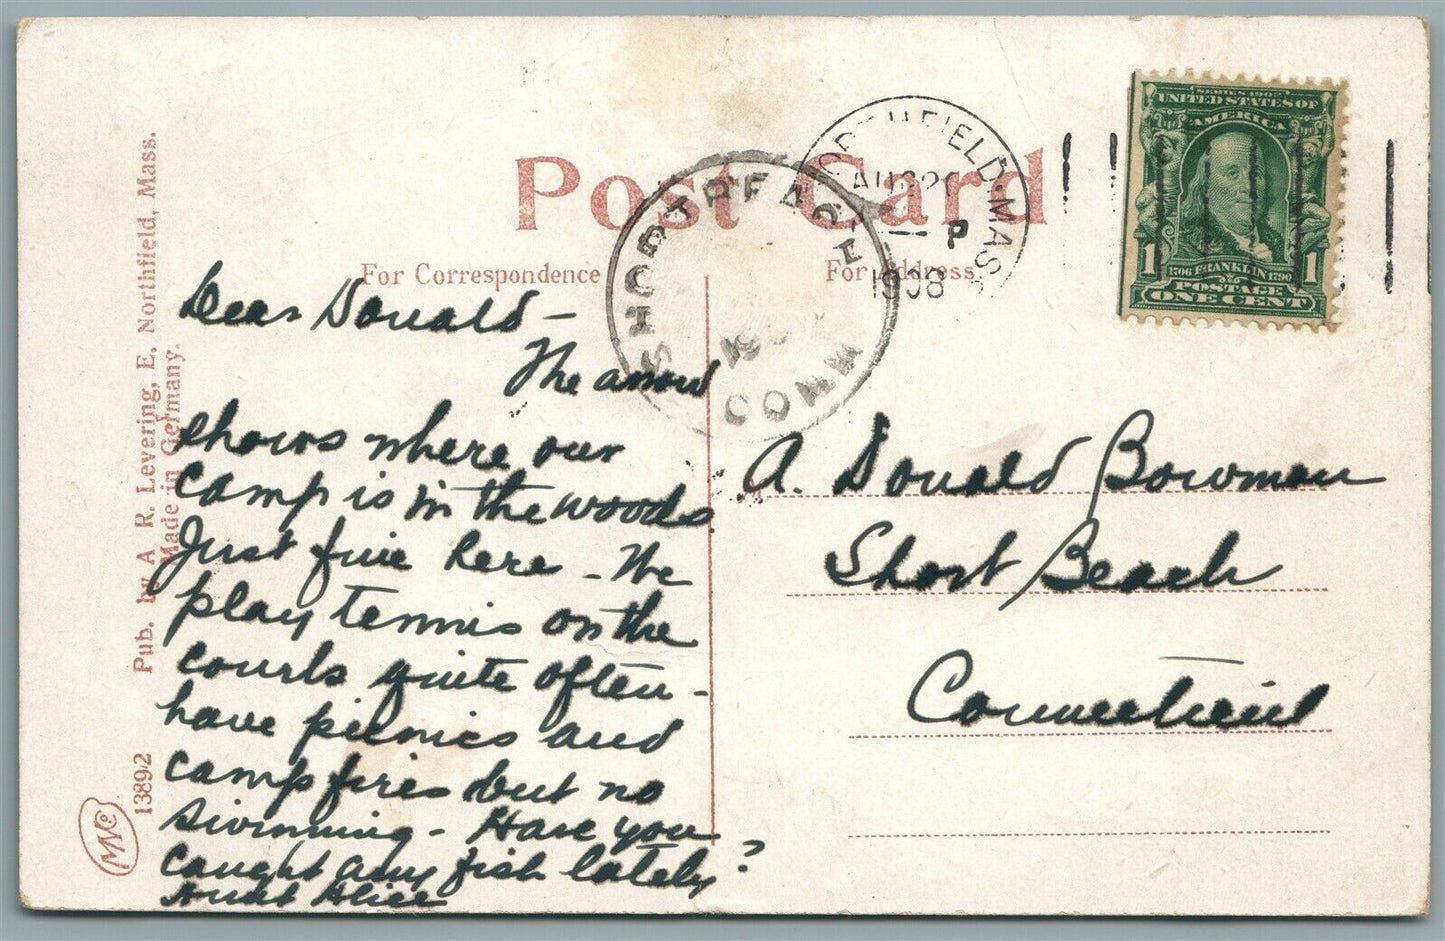 Post Card
For Correspondence
For Address
NORTHFIELD, MASS
AUG
P
1908
SHORT BEACH
19
CONN
SERIES 1902
UNITED STATES OF
AMERICA
1706 FRANKLIN 1790
1 1
POSTAGE
ONE CENT
Dear Donald –
The arrow
shows where our
camp is in the woods
Just fine here – We
play tennis on the
courts quite often –
have picnics and
camp fires but no
swimming – Have you
caught any fish lately?
Aunt Alice
A. Donald Bowman
Short Beach
Connecticut
Pub. by A. R. Levering, E. Northfield, Mass.
Made in Germany.
13892
MNCo